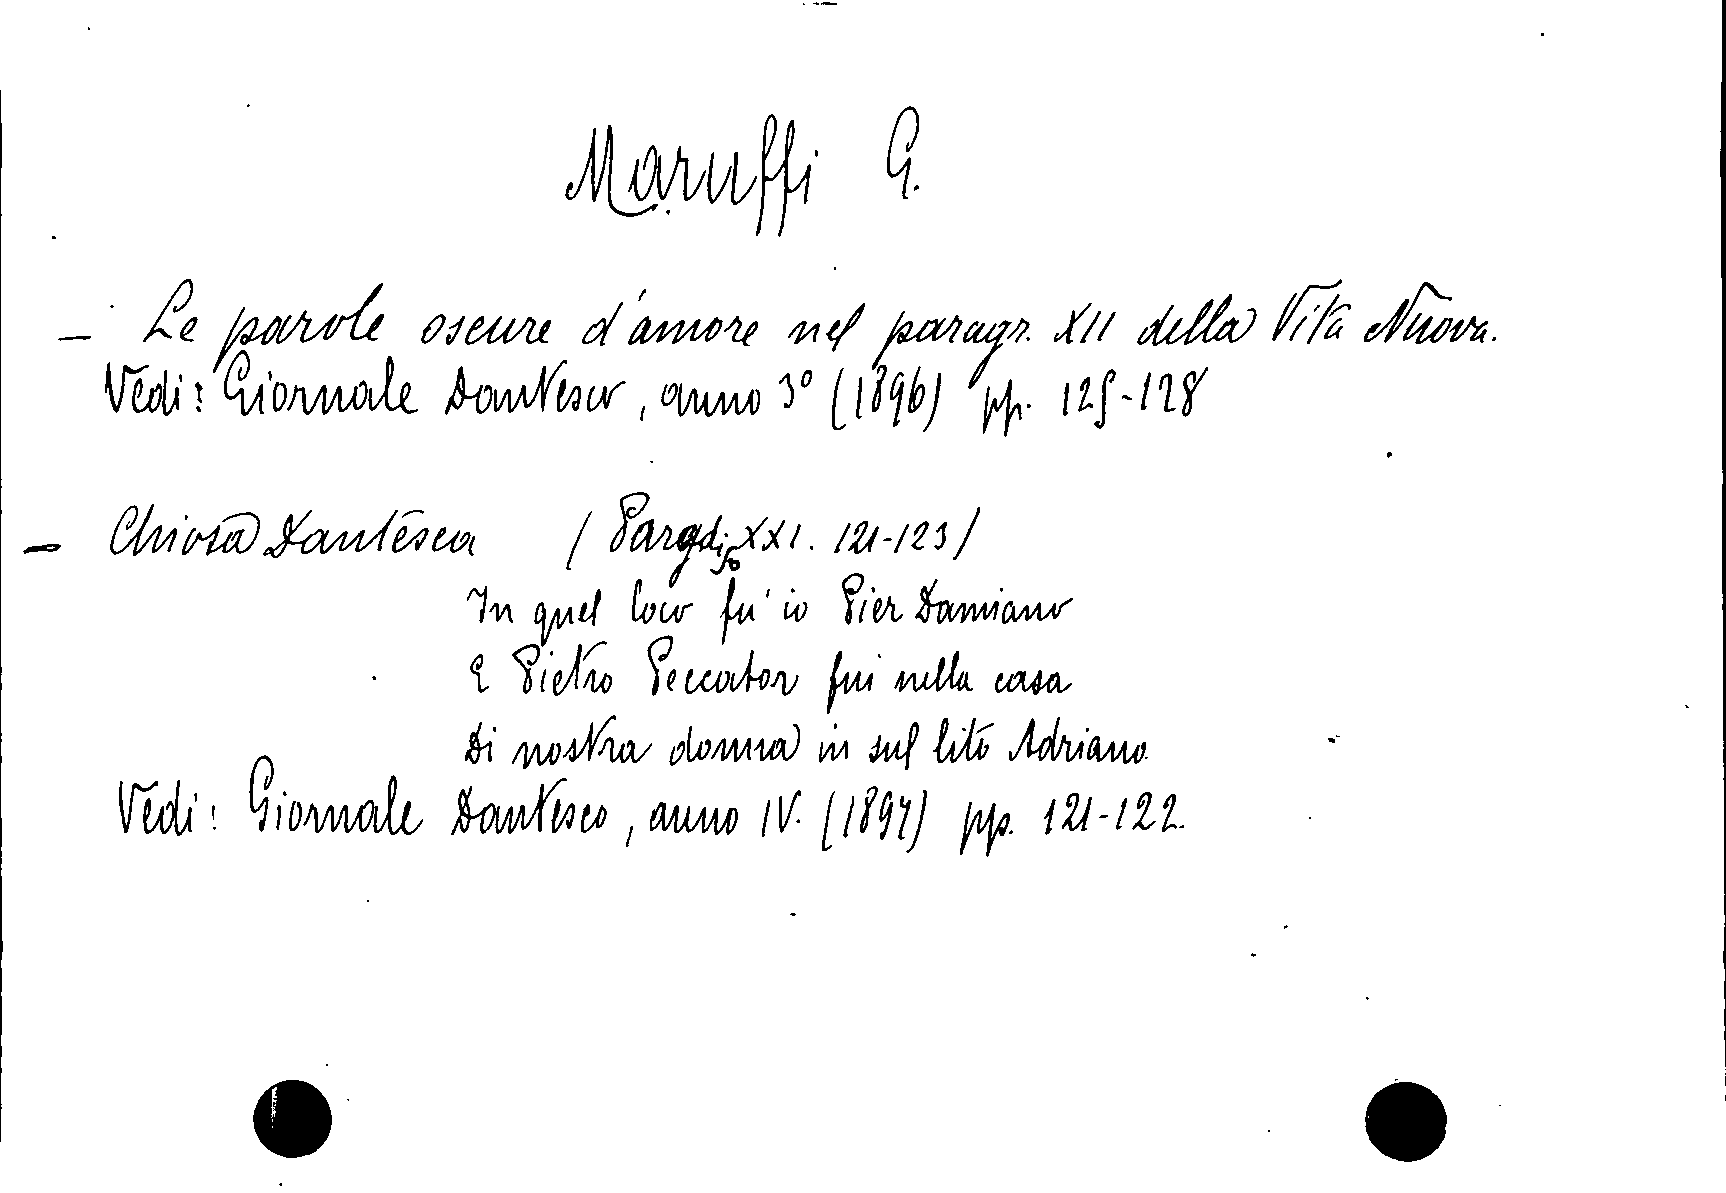 Maruffi G.
– Le parole oscure d'amore nel paragr. XII della Vita Nuova.
Vedi: Giornale Dantesco, anno 3° (1896) pp. 125-128
– Chiosa Dantesca ( XXI. 121-123)
In quel loco fu' io Pier Damiano
E Pietro Peccator fui nella casa
Di nostra donna in sul lito Adriano
Vedi: Giornale Dantesco, anno IV. (1897) pp. 121-122.